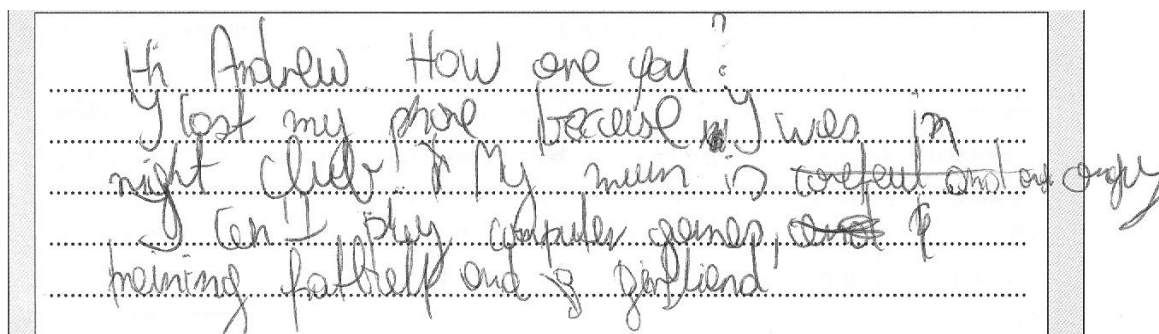 Hi Andrew How are you?
I lost my phone because I was in
night club. My mum is angry
I can I play computer games,
treining fattbell and girlfriend